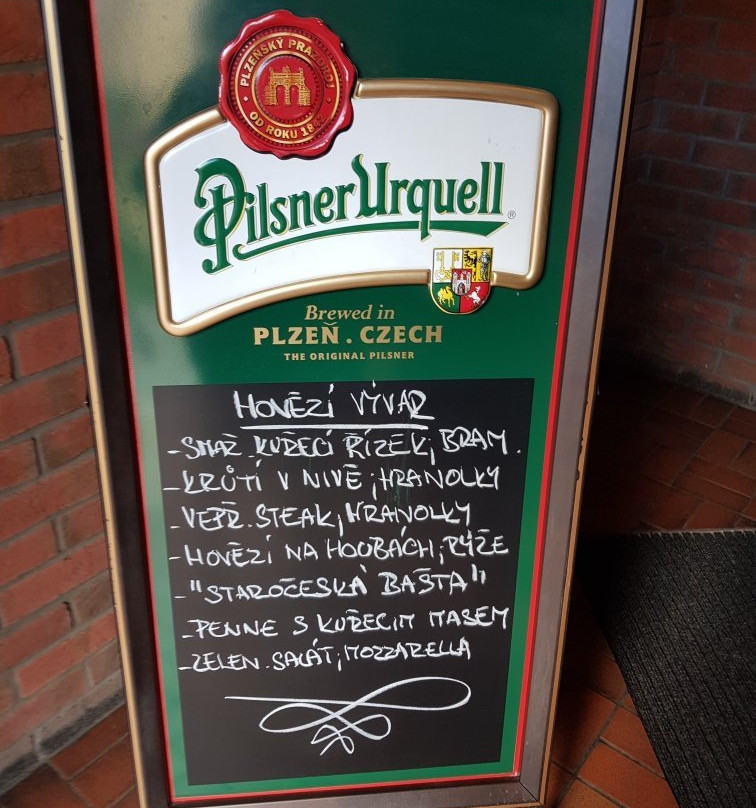 PLZEŇSKÝ PRAZDROJ
OD ROKU 1842
Pilsner Urquell®
Brewed in
PLZEŇ . CZECH
THE ORIGINAL PILSNER
HOVĚZÍ VÝVAR
-SMAŽ. KUŘECÍ ŘÍZEK; BRAM.
-KRŮTÍ V NIVĚ; HRANOLKY
-VEPŘ. STEAK; HRANOLKY
-HOVĚZÍ NA HOUBÁCH; RÝŽE
-"STAROČESKÁ BAŠTA"
-PENNE S KUŘECÍM MASEM
-ZELEN. SALÁT; MOZZARELLA